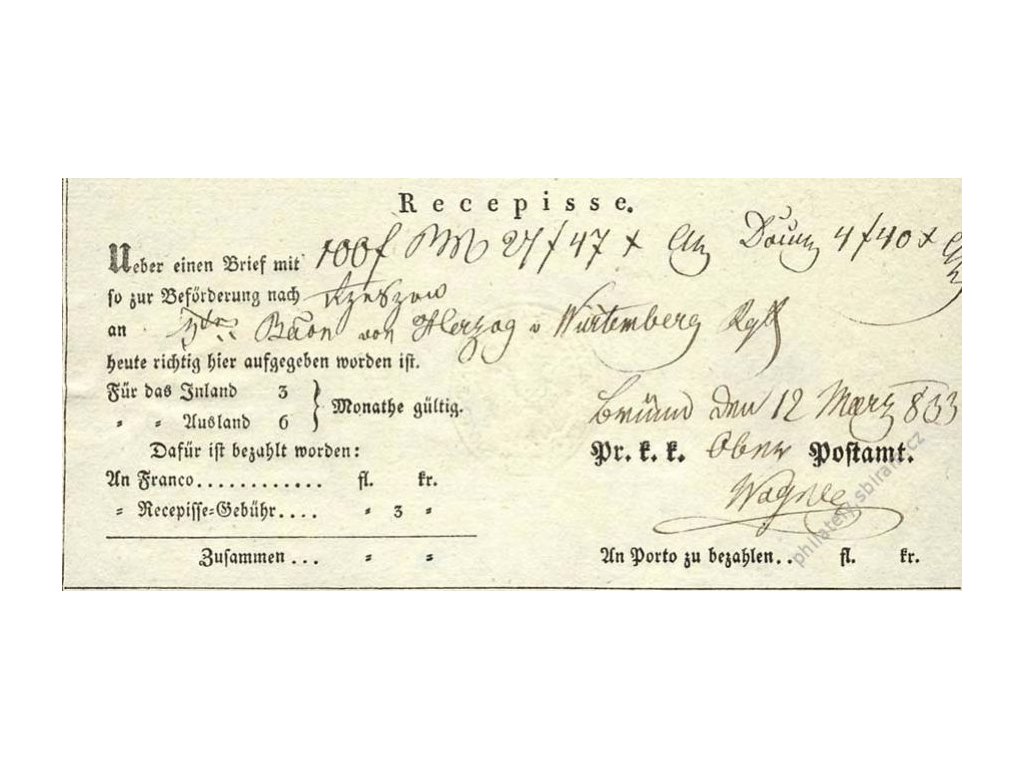 Recepisse.
Ueber einen Brief mit 100f 27 f 47 x 4 f 40 x
so zur Beförderung nach Rzeszow
an Baon von Herzog v Würtemberg Rgt
heute richtig hier aufgegeben worden ist.
Für das Inland 3
" " Ausland 6 } Monathe gültig.
Brünn den 12 März 833
Dafür ist bezahlt worden:
Pr. k. k. Ober Postamt.
An Franco............ fl. kr.
Wagner
" Recepisse-Gebühr.... " 3 "
Zusammen... " "
An Porto zu bezahlen.. fl. kr.
philatelie.sbiram.cz